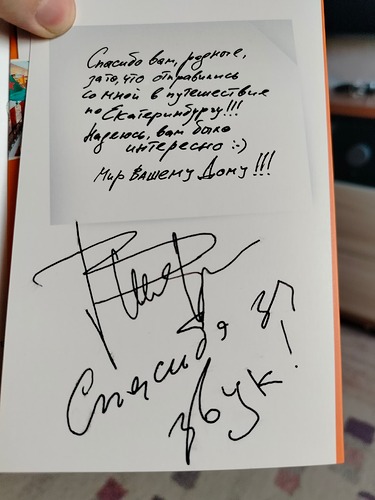 Спасибо вам, родные,
за то, что отправились
со мной в путешествие
по Екатеринбургу!!!
Надеюсь, вам было
интересно :-)
Мир Вашему Дому!!!
Спасибо за
звук!